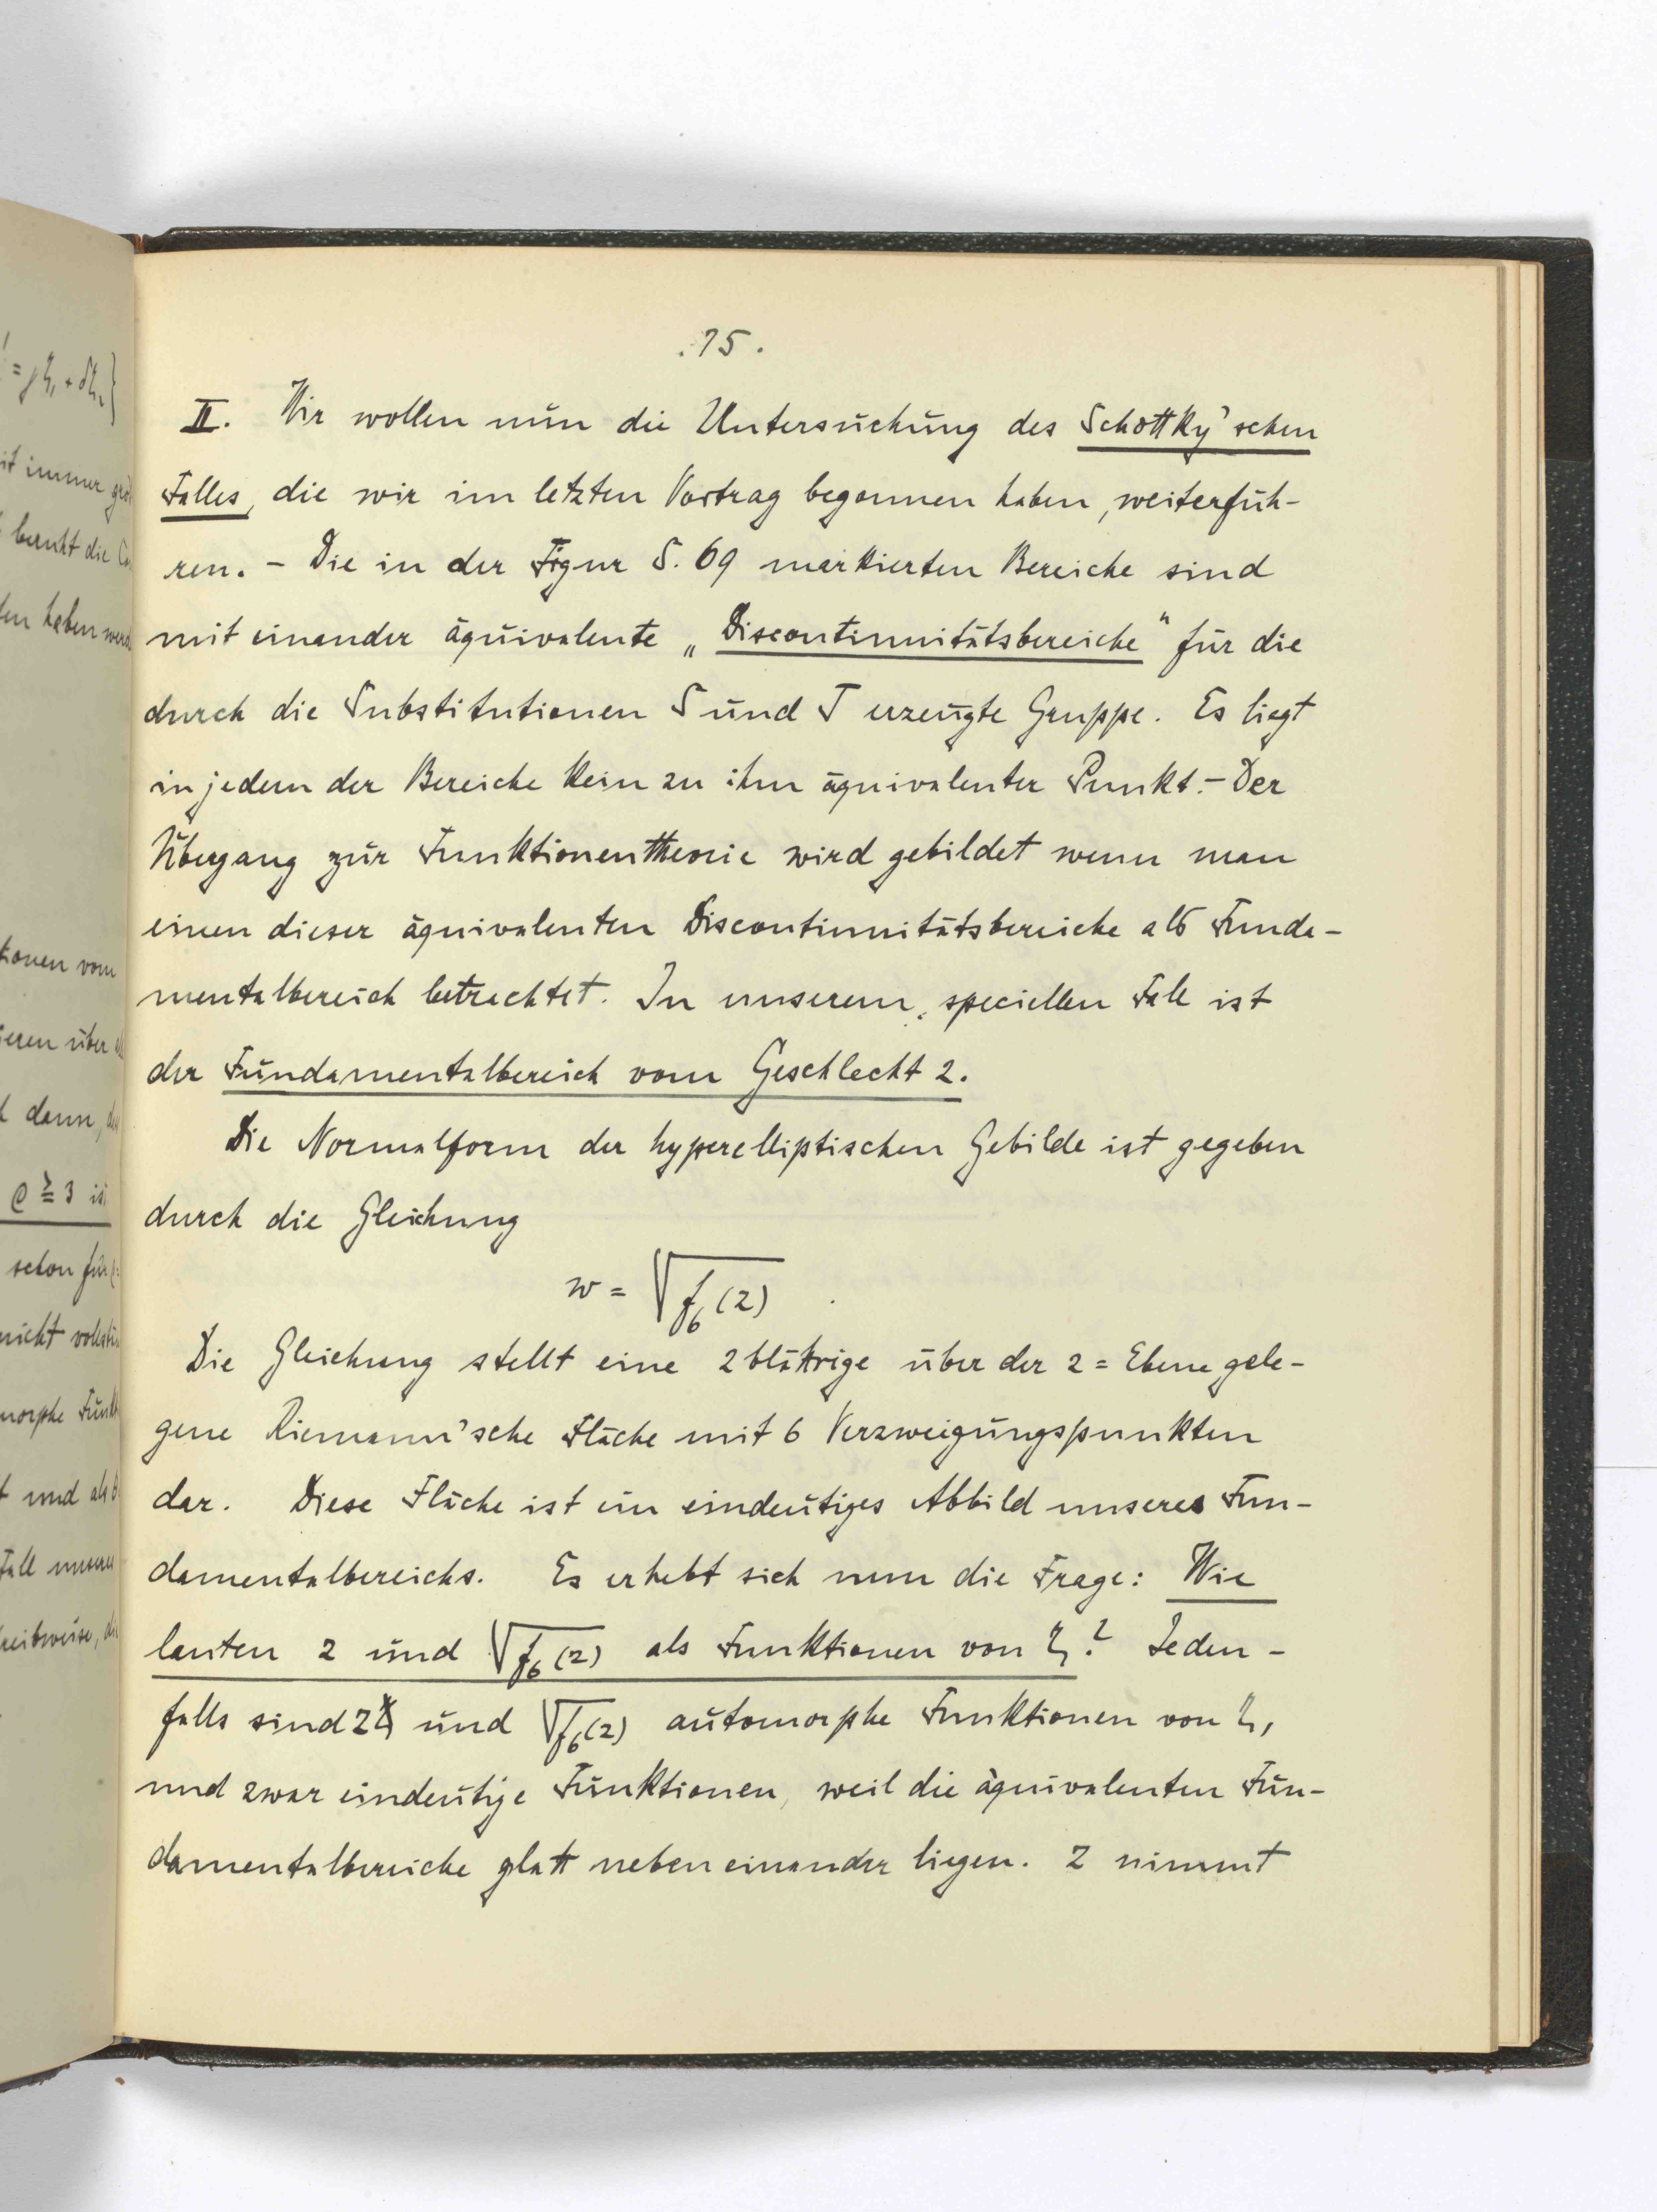 .75.
II. Wir wollen nun die Untersuchung des Schottky'schen
Falles, die wir im letzten Vortrag begonnen haben, weiterfüh-
ren. – Die in der Figur S. 69 markierten Bereiche sind
mit einander äquivalente „Discontinuitätsbereiche" für die
durch die Substitutionen S und T erzeugte Gruppe. Es liegt
in jedem der Bereiche kein zu ihm äquivalenter Punkt. – Der
Übergang zur Funktionentheorie wird gebildet wenn man
einen dieser äquivalenten Discontinuitätsbereiche als Funda-
mentalbereich betrachtet. In unserem speciellen Fall ist
der Fundamentalbereich vom Geschlecht 2.
Die Normalform der hyperelliptischen Gebilde ist gegeben
durch die Gleichung
w = √f₆(z) .
Die Gleichung stellt eine 2 blättrige über der z = Ebene gele-
gene Riemann'sche Fläche mit 6 Verzweigungspunkten
dar. Diese Fläche ist ein eindeutiges Abbild unseres Fun-
damentalbereichs. Es erhebt sich nun die Frage: Wie
lauten z und √f₆(z) als Funktionen von ζ? Jeden-
falls sind z und √f₆(z) automorphe Funktionen von ζ,
und zwar eindeutige Funktionen, weil die äquivalenten Fun-
damentalbereiche glatt neben einander liegen. z nimmt